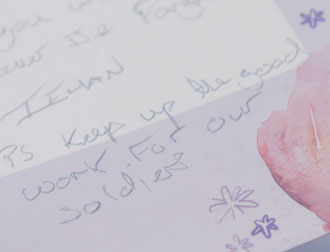 you
never be Forgo
PS Keep up the good
work for our
soldiers